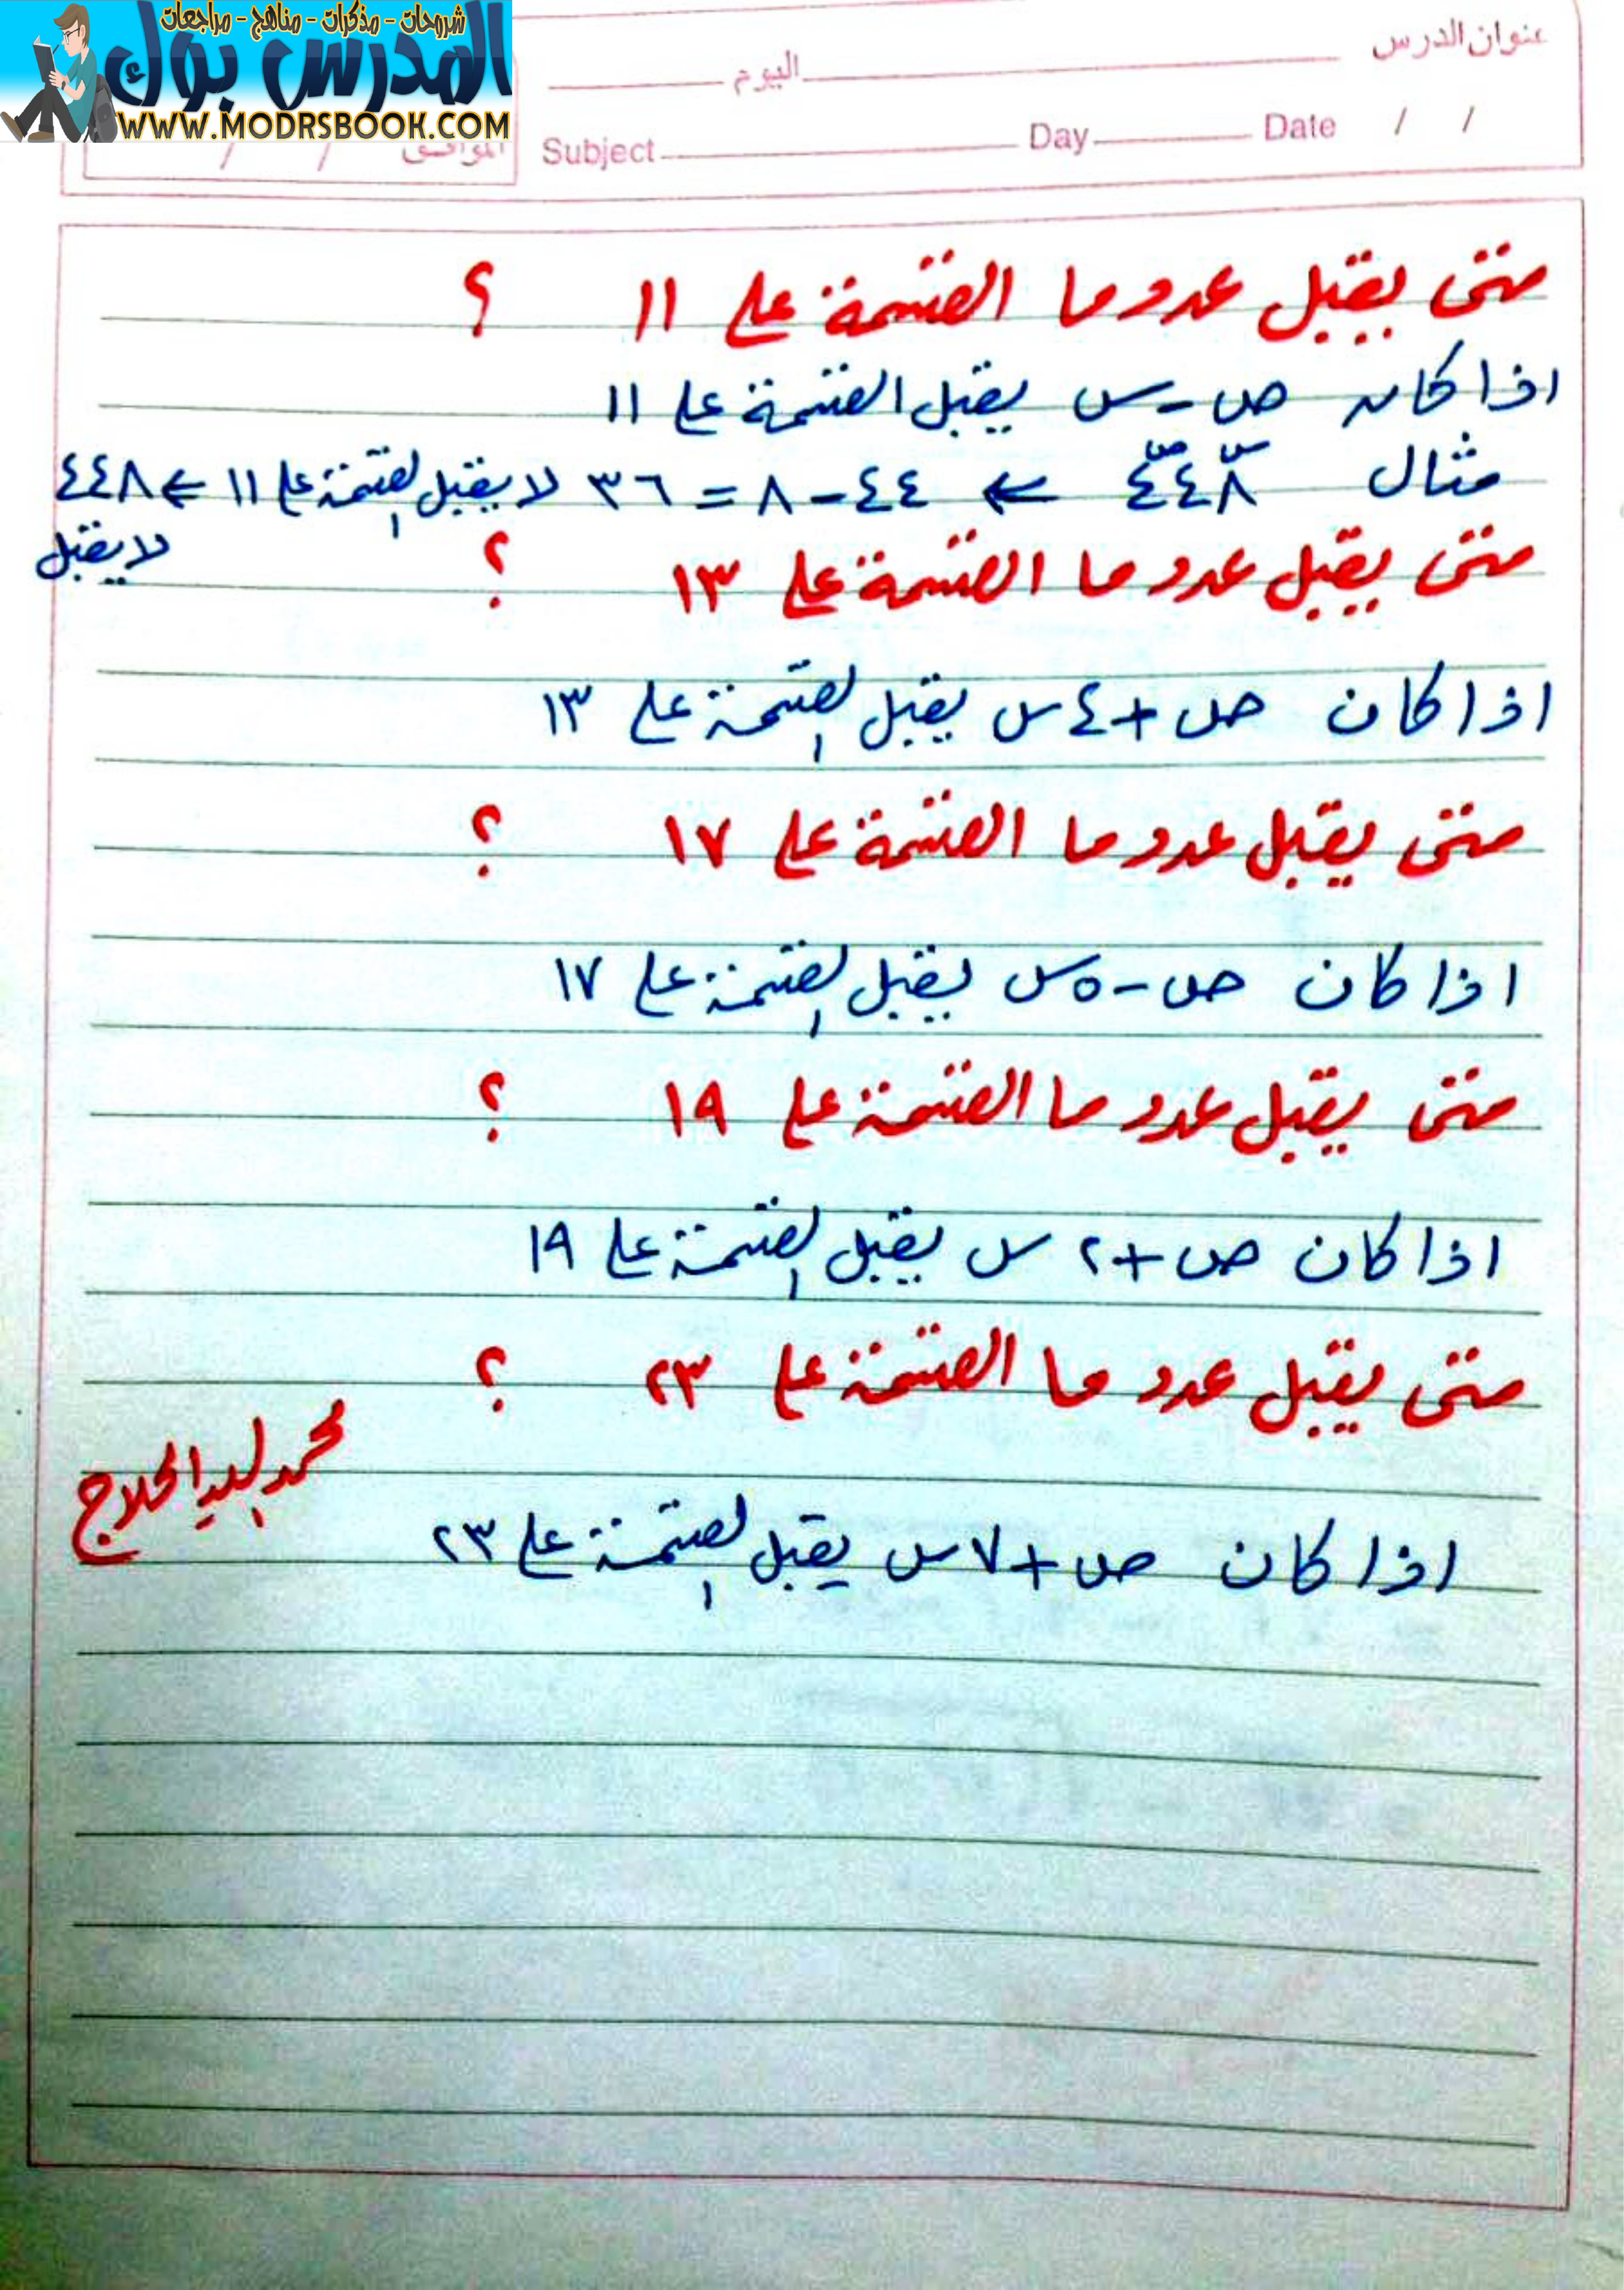 شروحات - مذكرات - مناهج - مراجعات
المدرس بوك
WWW.MODRSBOOK.COM
عنوان الدرس
اليوم
Subject Day Date / /
الموافق / /
متى يقبل عدد ما القسمة على ١١ ؟
اذا كان ص - س يقبل القسمة على ١١
مثال ٤٤٨ ← ٤٤ - ٨ = ٣٦ لا يقبل القسمة على ١١ ← ٤٤٨
لا يقبل
متى يقبل عدد ما القسمة على ١٣ ؟
اذا كان ص + ٤ س يقبل القسمة على ١٣
متى يقبل عدد ما القسمة على ١٧ ؟
اذا كان ص - ٥ س يقبل القسمة على ١٧
متى يقبل عدد ما القسمة على ١٩ ؟
اذا كان ص + ٢ س يقبل القسمة على ١٩
متى يقبل عدد ما القسمة على ٢٣ ؟
محمد السيد الحلاج
اذا كان ص + ٧ س يقبل القسمة على ٢٣